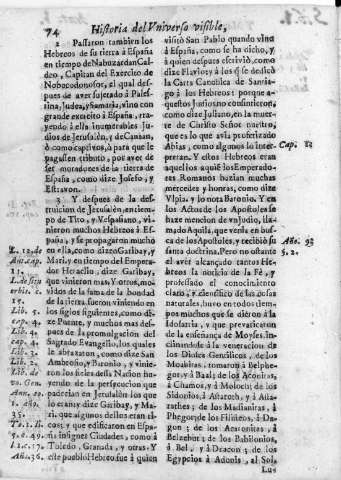 74 Historia del Vniverso visible,
2 Passaron tambien los
Hebreos de su tierra à España
en tiempo de Nabuzardan Cal-
deo, Capitan del Exercito de
Nobocodonosor, el qual des-
pues de aver sujetado à Pales-
tina, Judea, y Samaria, vino con
grande exercito à España, tra-
yendo à ella inumerables Ju-
dios de Jerusalèn, y de Canaan,
ò como captivos, ò para que le
pagassen tributo, por aver de
ser moradores de la tierra de
España, como dize Josefo, y
Estravon.
3 Y despues de la des-
truicion de Jerusalèn, en tiem-
po de Tito, y Vespasiano, vi-
nieron muchos Hebreos à Es-
paña, y se propagaron mucho
en ella, como dize Garibay, y
Mari, y en tiempo del Empera-
dor Heraclio, dize Garibay,
que vinieron mas. Y otros, mo-
vidos de la fama de la bondad
de la tierra, fueron viniendo en
los siglos siguientes, como di-
ze Puente, y muchos mas des-
pues de la promulgacion del
Sagrado Evangelio, los quales
le abrazaron, como dize San
Ambrosio, y Baronio, y vinie-
ron los fieles dessa Nacion hu-
yendo de la persecucion que
padecian en Jerusalèn los que
lo eran; dize Garibay, y Ma-
ri, que algunos dellos eran di-
cos; y que edificaron en Espa-
ña insignes Ciudades, como à
Toledo, Granada, y otras. Y
este pueblo Hebreo fue à quien
L. 12. de
Ant. cap.
11.
Lib. 5.
cap. 4.
Lib. 4.
cap. 4.
Lib. 3.
Lib. de
vo. Gen.
Ann. 10.
1. año.
35.
To. 1. B.
5. c. 49.
l. 1. c. 17.
Año. 36.
visitò San Pablo quando vino
à España, como se ha dicho, y
à quien despues escriviò, como
dize Flavio; y à los q se dedicò
la Carta Canonica de Santia-
go à los Hebreos: porque a-
questos Judios no consintieron,
como dize Juliano, en la muer-
te de Christo Señor nuestro,
que es lo que avia profetizado
Abias, como algunos lo inter-
pretan. Y estos Hebreos eran
aquellos à quien los Emperado-
res Romanos hazian muchas
mercedes, y honras, como dize
Vlpia. y lo nota Baronio. Y en
los Actos de los Apostoles se
haze mencion de vn Judio, lla-
mado Aquila, que venia en bus-
ca de los Apostoles, y recibiò su
santa doctrina. Pero no obstante
el aver alcançado tantos He-
breos la noticia de la Fè, y
professado el conocimiento
claro, y cientifico de las cosas
naturales, huvo en todos tiem-
pos muchos que se dieron à la
Idolatria, y que prevaricaron
de la enseñança de Moyses. In-
clinandose à la veneracion de
los Dioses Gentilicos, de los
Moabitas, tomaron à Belphe-
gor; y à Baal; de los Amonitas,
à Chamos, y à Moloch; de los
Sidonios, à Astaroth, y à Asta-
rathes; de los Madianitas, à
Phegor; de los Filisteos, à Da-
gon; de los Acaronitas, à
Belzebut; de los Babilonios, à
Bel, y à Dracon; de los
Egypcios à Adonis, al Sol,
Cap. 12
Año. 93
§. 2.
Lus